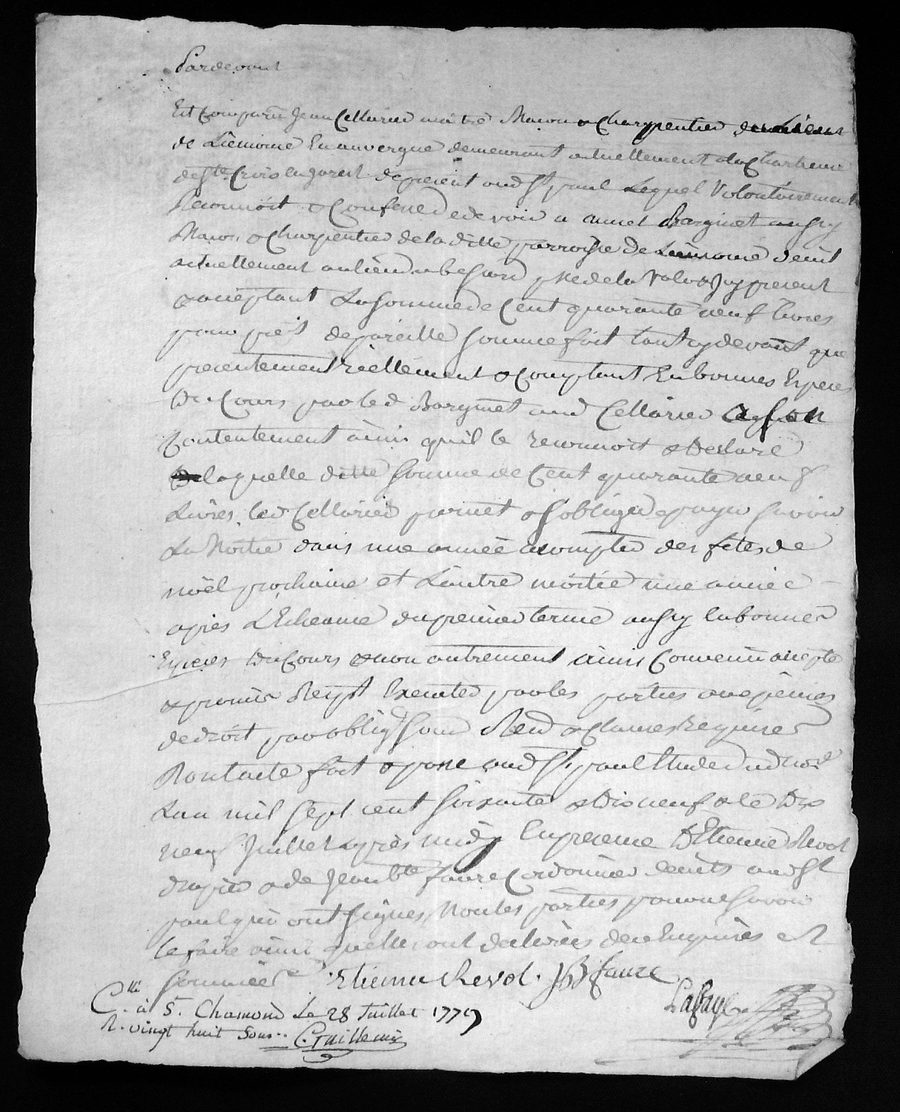 Pardevant
Est Comparu Jean Cellarier maitre Macon & Charpentier
de Lemoine En auvergne demeurant actuellement a la Chartreuse
de Ste Croix en forest de present aud St paul Lequel Volontairement
Reconnoit & Confesse devoir a annet Barginet aussy
Macon & Charpentier de la ditte parroisse De demt
actuellement au lieu psse de la Valla Jcy present
& acceptant La somme de Cent quarante neuf livres
pour prêt de pareille somme fait tant cy devant que
presentement réellement & Comptant En bonnes Especes
Du Cours par led Barginet aud Cellarier a son
Contentement ainsi quil le reconnoit & Declare
laquelle ditte somme de Cent quarante neuf
Livres led Cellarier promet & soblige payer savoir
La Moitié dans une année a compter des fetes de
noël prochaine et Lautre moitié une année
après LEcheance du premier terme aussy En bonnes
Especes Du Cours & non autrement ainsi Convenu accepté
& promis par les parties aux peines
de droit par oblig Soum Ren & Clauses Requises
fait & passé aud St paul Etude du nore
Lan mil sept cent soixante & Dix neuf & le Dix
neuf Juillet après midy En presence DEtienne Revol
& de Jean bte faure Cordonnier demts aud St
paul qui ont signés, Non les parties pour ne savoir
le faire ainsi quelles ont declarés de ce Enquises et
sommées
Etienne Revol. JB faure
Clé à St. Chamond Le 28 Juillet 1779
R. vingt huit sous..